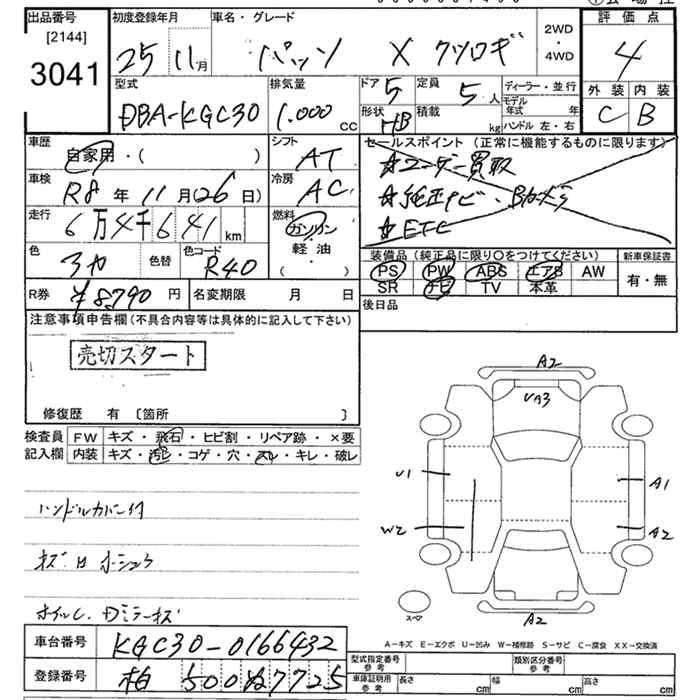 出品番号 初度登録年月 車名・グレード 評価点
[2144] 25 11月 パッソ X クツロギ 2WD・4WD 4
3041 型式 排気量 ドア 5 定員 5人 ディーラー・並行 外装 内装
DBA-KGC30 1.000 cc 形状 HB 積載 kg モデル年式 年 C B
ハンドル 左・右
車歴 シフト セールスポイント (正常に機能するものに限ります)
自家用・( ) AT ☆ユーザー買取
車検 R8年11月(26日) 冷房 AC ☆純正ナビ・Bカメラ
走行 6万4千641km 燃料 ☆ETC
ガソリン・軽油
色 色替 色コード ( ) 装備品 (純正品に限り○をつけてください) 新車保証書
R40 PS PW ABS エアB AW 有・無
SR ナビ TV 本革
R券 ¥8,790円 名変期限 月 日 後日品
注意事項申告欄(不具合内容等は具体的に記入して下さい)
売切スタート
修復歴 有 [箇所 ]
検査員 FW キズ・飛石・ヒビ割・リペア跡・×要
記入欄 内装 キズ・汚レ・コゲ・穴・スレ・キレ・破レ
A2
UA3
U1
A1
W2
A2
A2
スペア
ハンドルカバー付
A-キズ E-エクボ U-凹み W-補修跡 S-サビ C-腐食 XX-交換済
車台番号 KGC30-0166432 型式指定番号 参考 類別区分番号 参考
登録番号 柏 500 7725 車庫証明用 参考 長さ cm 幅 cm 高さ cm